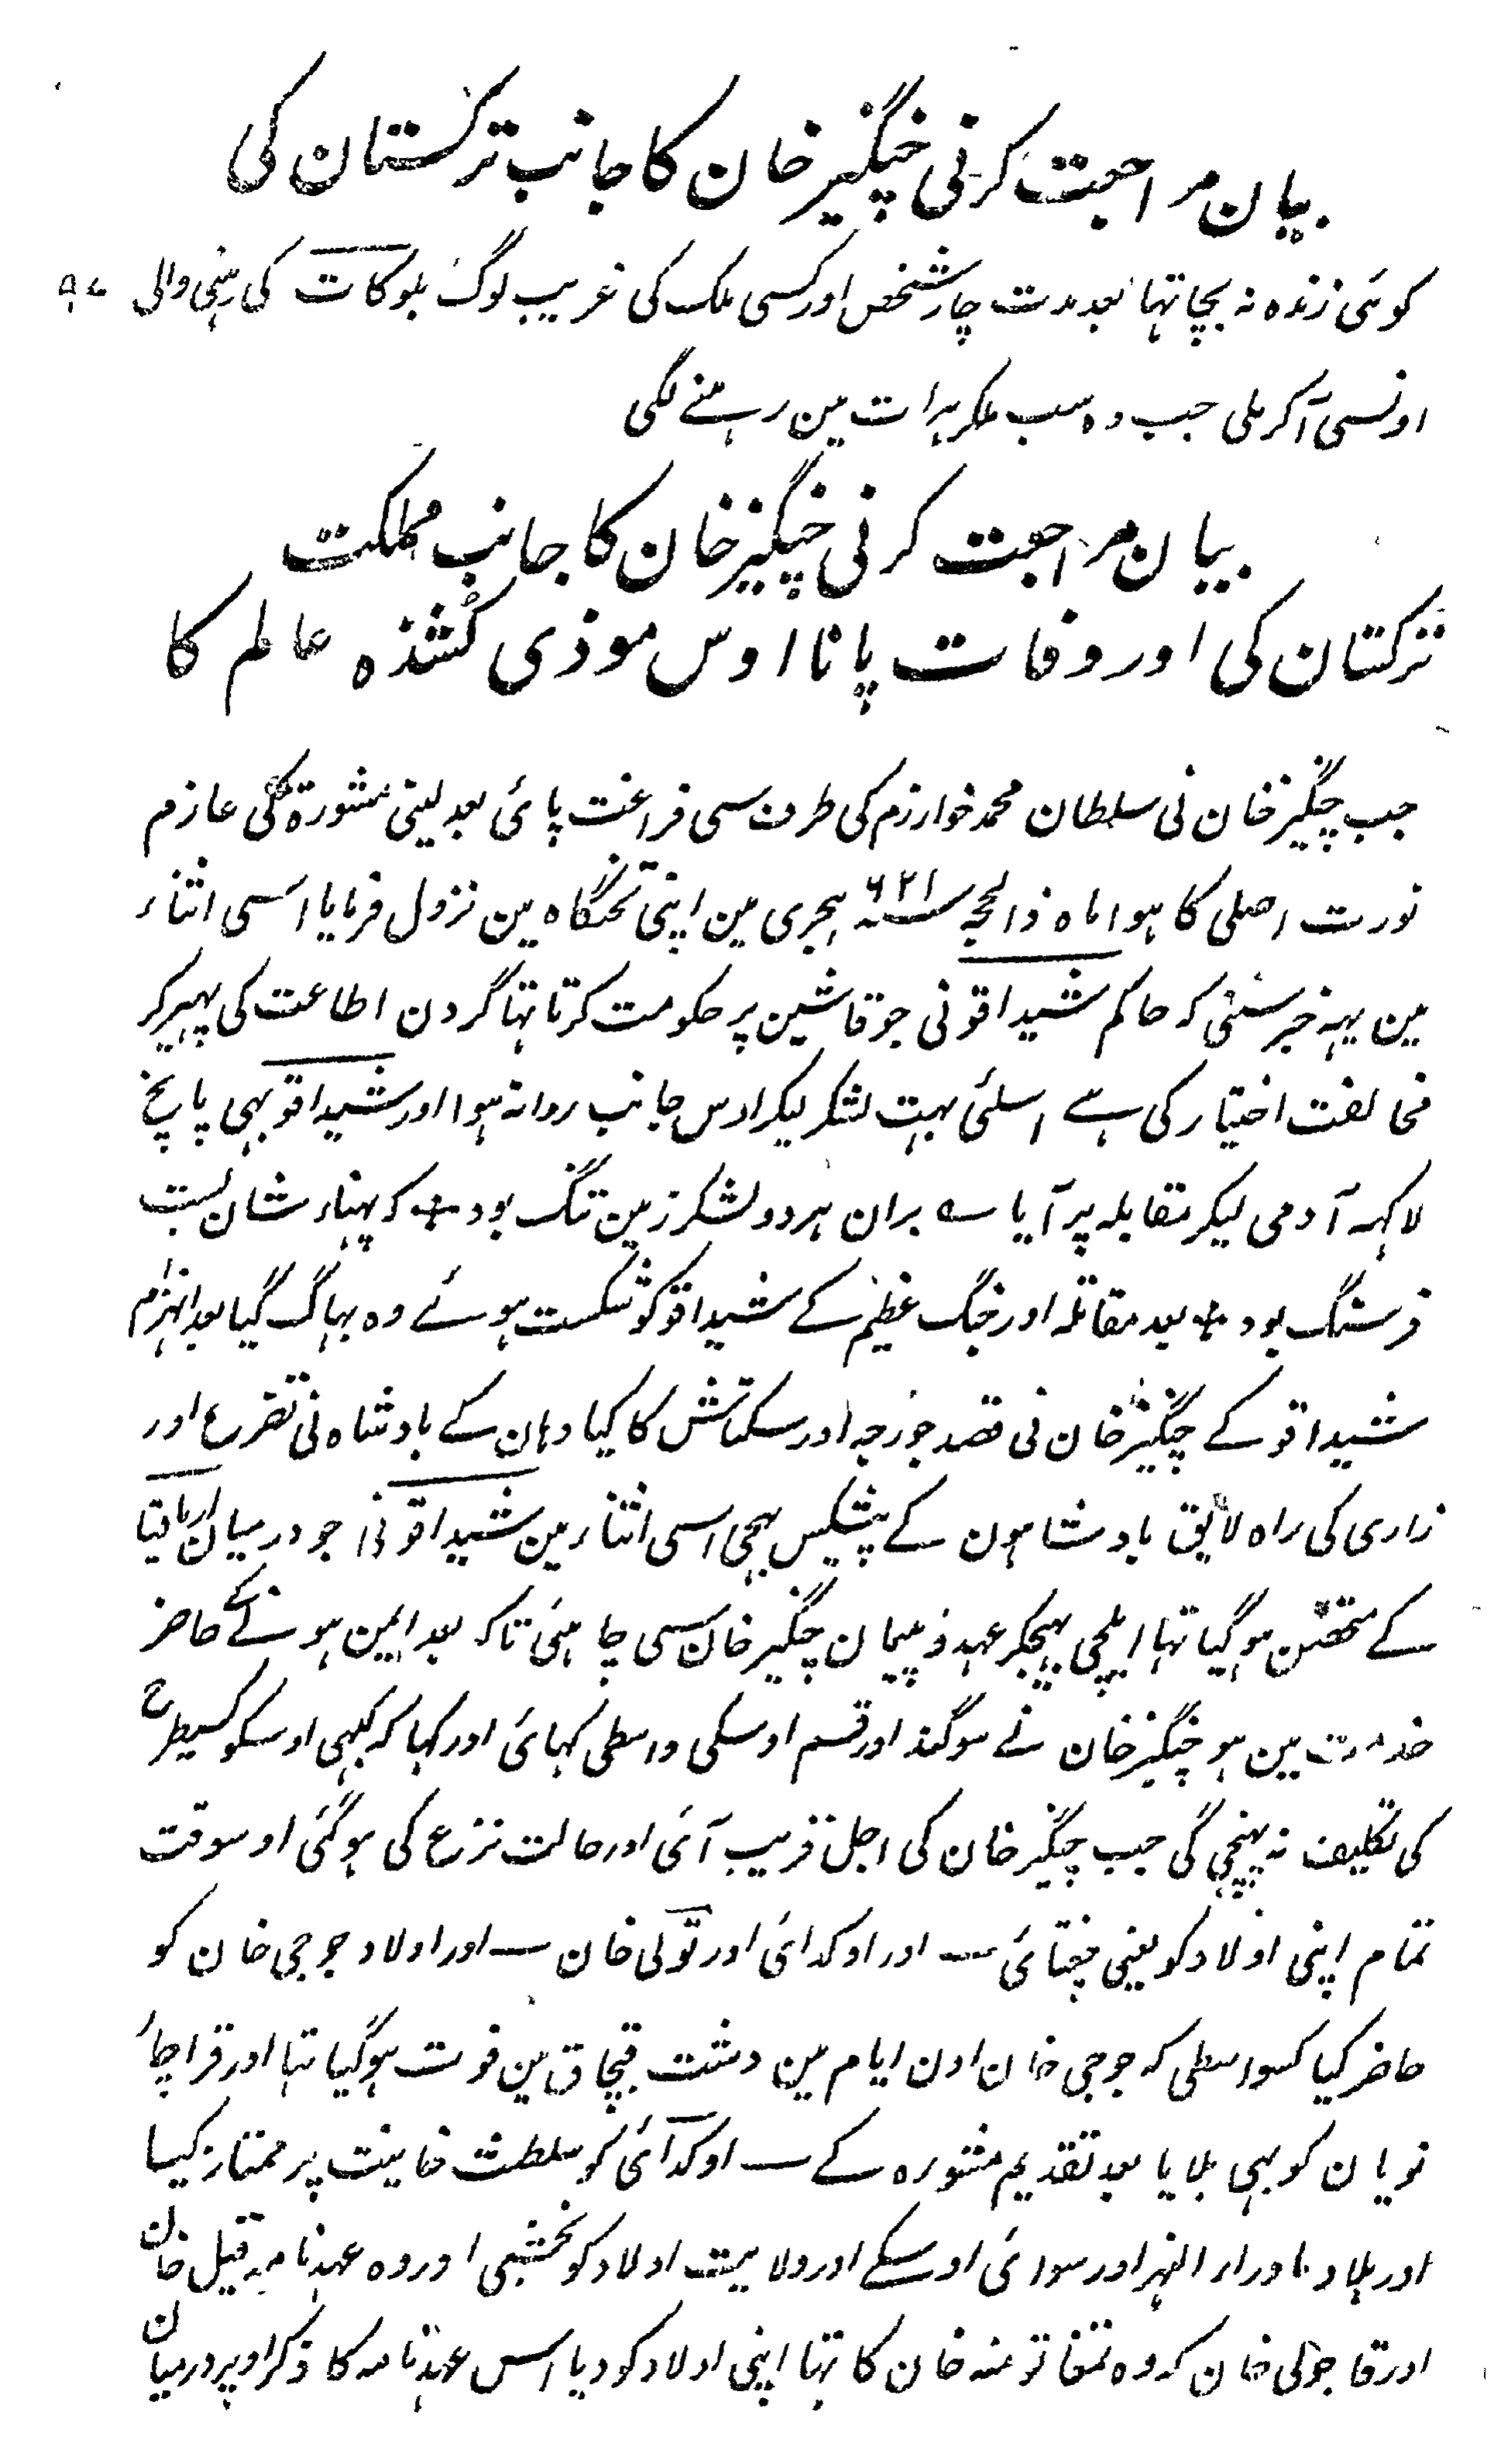 بیان مراجعت کرنی چنگیز خان کا جانب ترکستان کی
کوئی زندہ نہ بچا تہا بعد مدت چار شخص اور کسی ملک کی غریب لوگ بلوکات کی رہنی والی ۹۷
اونسی آکر ملی جب وہ سب ملکر ہرات مین رہنے لگی
بیان مراجعت کرنی چنگیز خان کا جانب مملکت
ترکستان کی اور وفات پانا اوس موذی کُشندہ عالم کا
جب چنگیز خان نی سلطان محمد خوارزم کی طرف سی فراغت پائی بعد لینی مشورۃ کی عازم
یورت اصلی کا ہوا ماہ ذالحجہ سنہ ۶۲۱ ہجری مین اپنی تختگاہ مین نزول فرمایا اسی اثناء
مین یہہ خبر سنی کہ حاکم شیداقو نی جو قاشین پر حکومت کرتا تہا گردن اطاعت کی پہیر کر
مخالفت اختیار کی ہے اسلئی بہت لشکر لیکر اوس جانب روانہ ہوا اور شیداقو بہی پانچ
لاکہہ آدمی لیکر مقابلہ پر آیا ے بران ہر دو لشکر زمین تنگ بود ÷ کہ پہناء شان بست
فرسنگ بود ÷ بعد مقاتلہ اور جنگ عظیم کے شیداقو کو شکست ہوئے وہ بہاگ گیا بعد انہزام
شیداقو کے چنگیز خان نی قصد جورجہ اور سکتاش کا کیا وہان کے بادشاہ نی تضرع اور
زاری کی راہ لایق بادشاہون کے پیشکیس بہیجی اسی اثناء مین شیداقو نی جو درمیان ارماقیا
کے متحصن ہو گیا تہا ایلچی بہیجکر عہد و پیمان چنگیز خان سی چاہئی تاکہ بعد ایمن ہونے کے حاضر
خدمت مین ہو چنگیز خان نے سوگند اور قسم اوسکی واسطی کہائی اور کہا کہ کبہی اوسکو کسیطرح
کی تکلیف نہ پہنچی گی جب چنگیز خان کی اجل قریب آئی اور حالت نزع کی ہو گئی اوسوقت
تمام اپنی اولاد کو یعنی چغتائی اور اوکدائی اور تولی خان اور اولاد جوجی خان کو
حاضر کیا کسواسطی کہ جوجی خان اون ایام مین دشت قبچاق مین فوت ہو گیا تہا اور قراچار
نویان کو بہی بلایا بعد تقدیم مشورہ کے اوکدائی کو سلطنت خانیت پر ممتاز کیا
اور بلاد ماوراء النہر اور سوائی اوسکے اور ولایت اولاد کو بخشی اور وہ عہدنامہ قبل خان
اور قاجولی خان کہ وہ تمغا تومنہ خان کا تہا اپنی اولاد کو دیا اس عہدنامہ کا ذکر اوپر درمیان